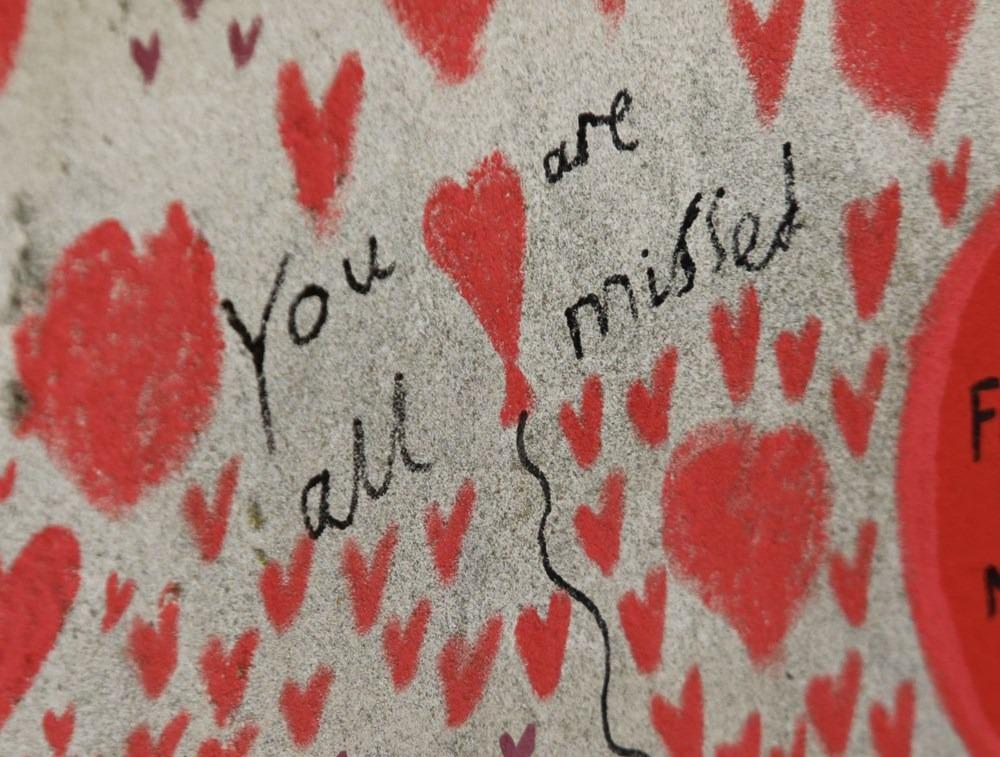 You are
all missed
F